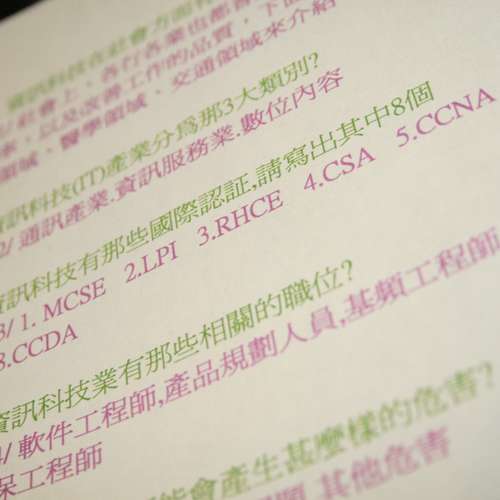 資訊科技在社會方面
社會上、各行各業也都
率，以及改善工作的品質，下面
領域、醫學領域、交通領域來介紹
資訊科技(IT)產業分爲那3大類別?
2/ 通訊產業.資訊服務業.數位內容
資訊科技有那些國際認証,請寫出其中8個
3/ 1. MCSE 2.LPI 3.RHCE 4.CSA 5.CCNA
8.CCDA
資訊科技業有那些相關的職位?
4/ 軟件工程師,產品規劃人員,基頻工程師
保工程師
能會產生甚麼樣的危害?
其他危害